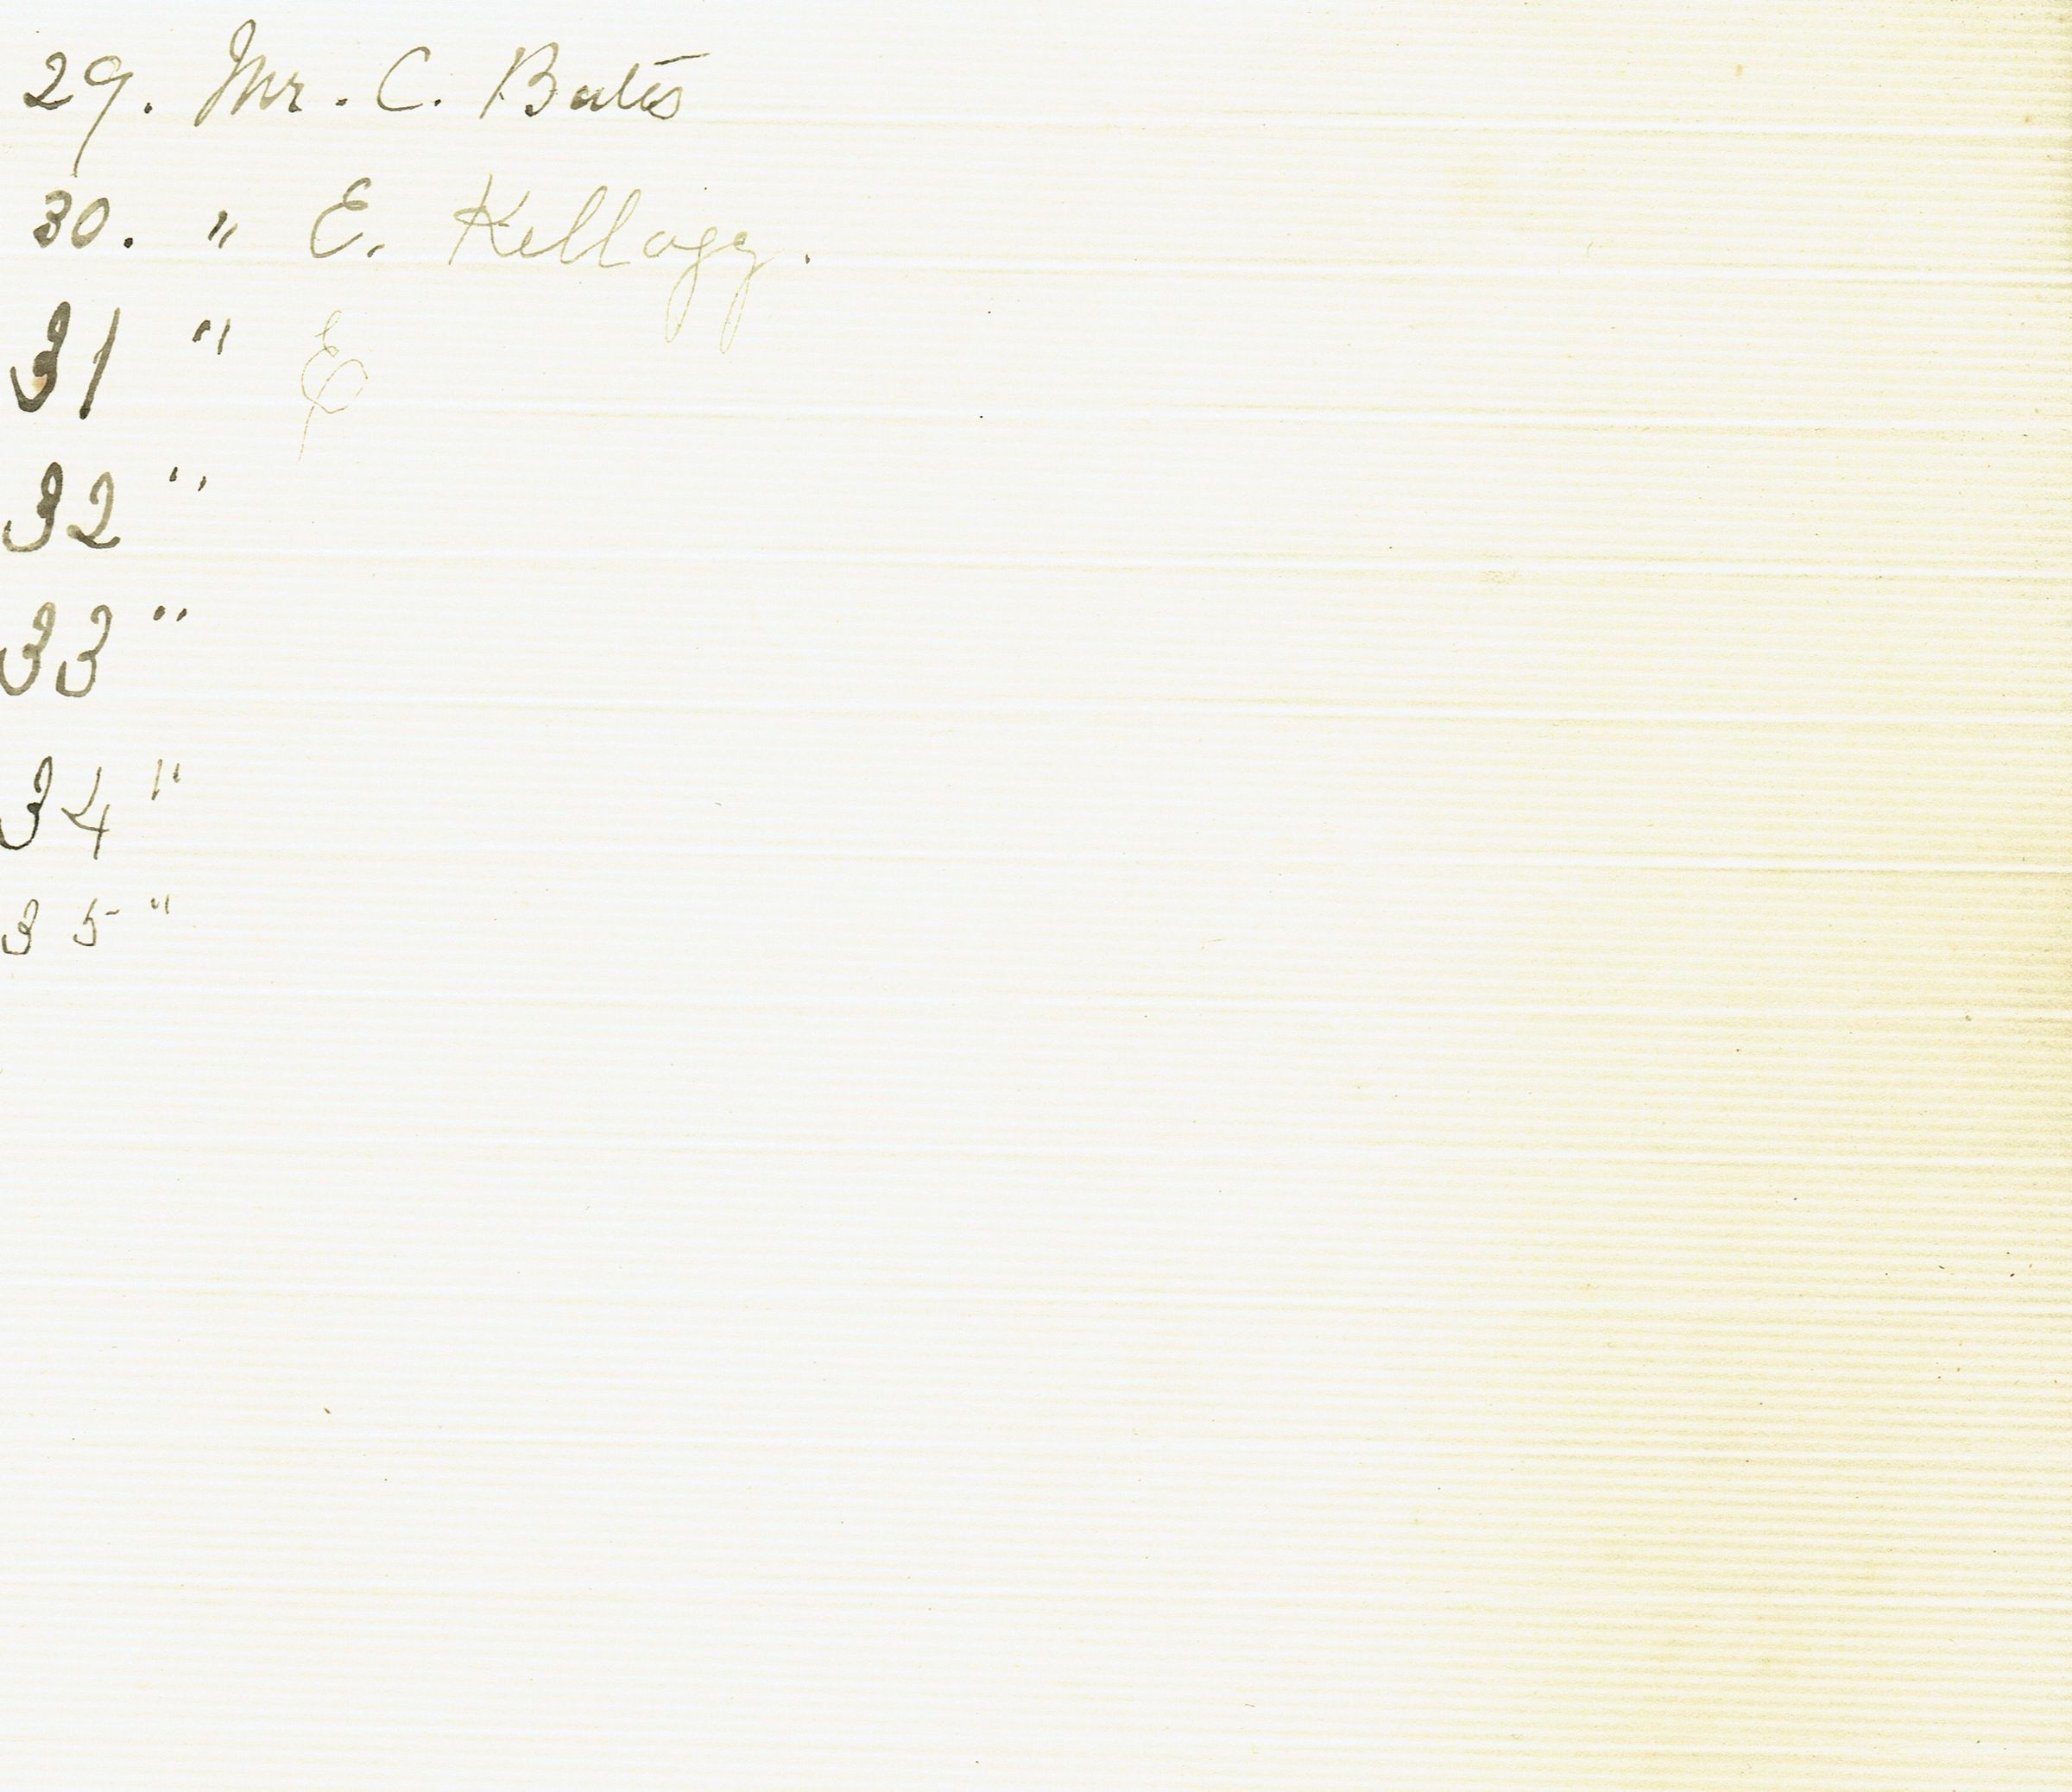 29. Mr. C. Bates
30. " E. Kellogg.
31 " E
32 "
33 "
34 "
35 "